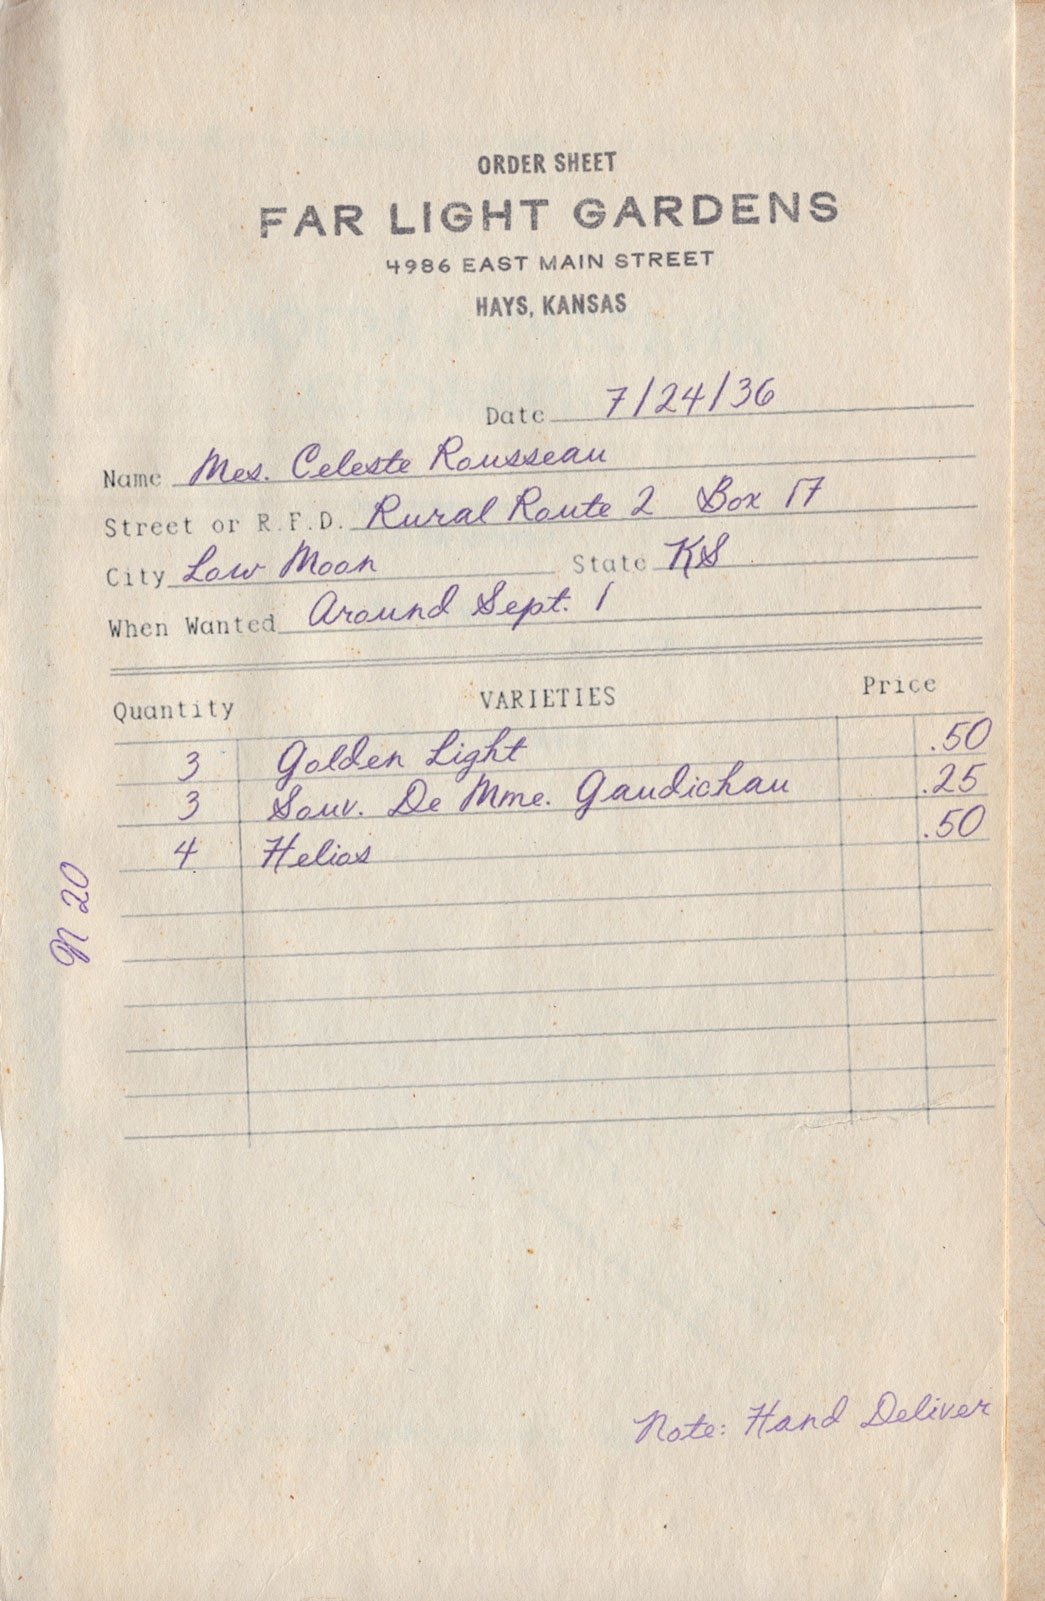 ORDER SHEET
FAR LIGHT GARDENS
4986 EAST MAIN STREET
HAYS, KANSAS
Date 7/24/36
Name Mrs. Celeste Rousseau
Street or R.F.D. Rural Route 2 Box 17
City Low Moon State KS
When Wanted Around Sept. 1
Quantity VARIETIES Price
3 Golden Light .50
3 Souv. De Mme. Gaudichau .25
4 Helios .50
20
Note: Hand Deliver